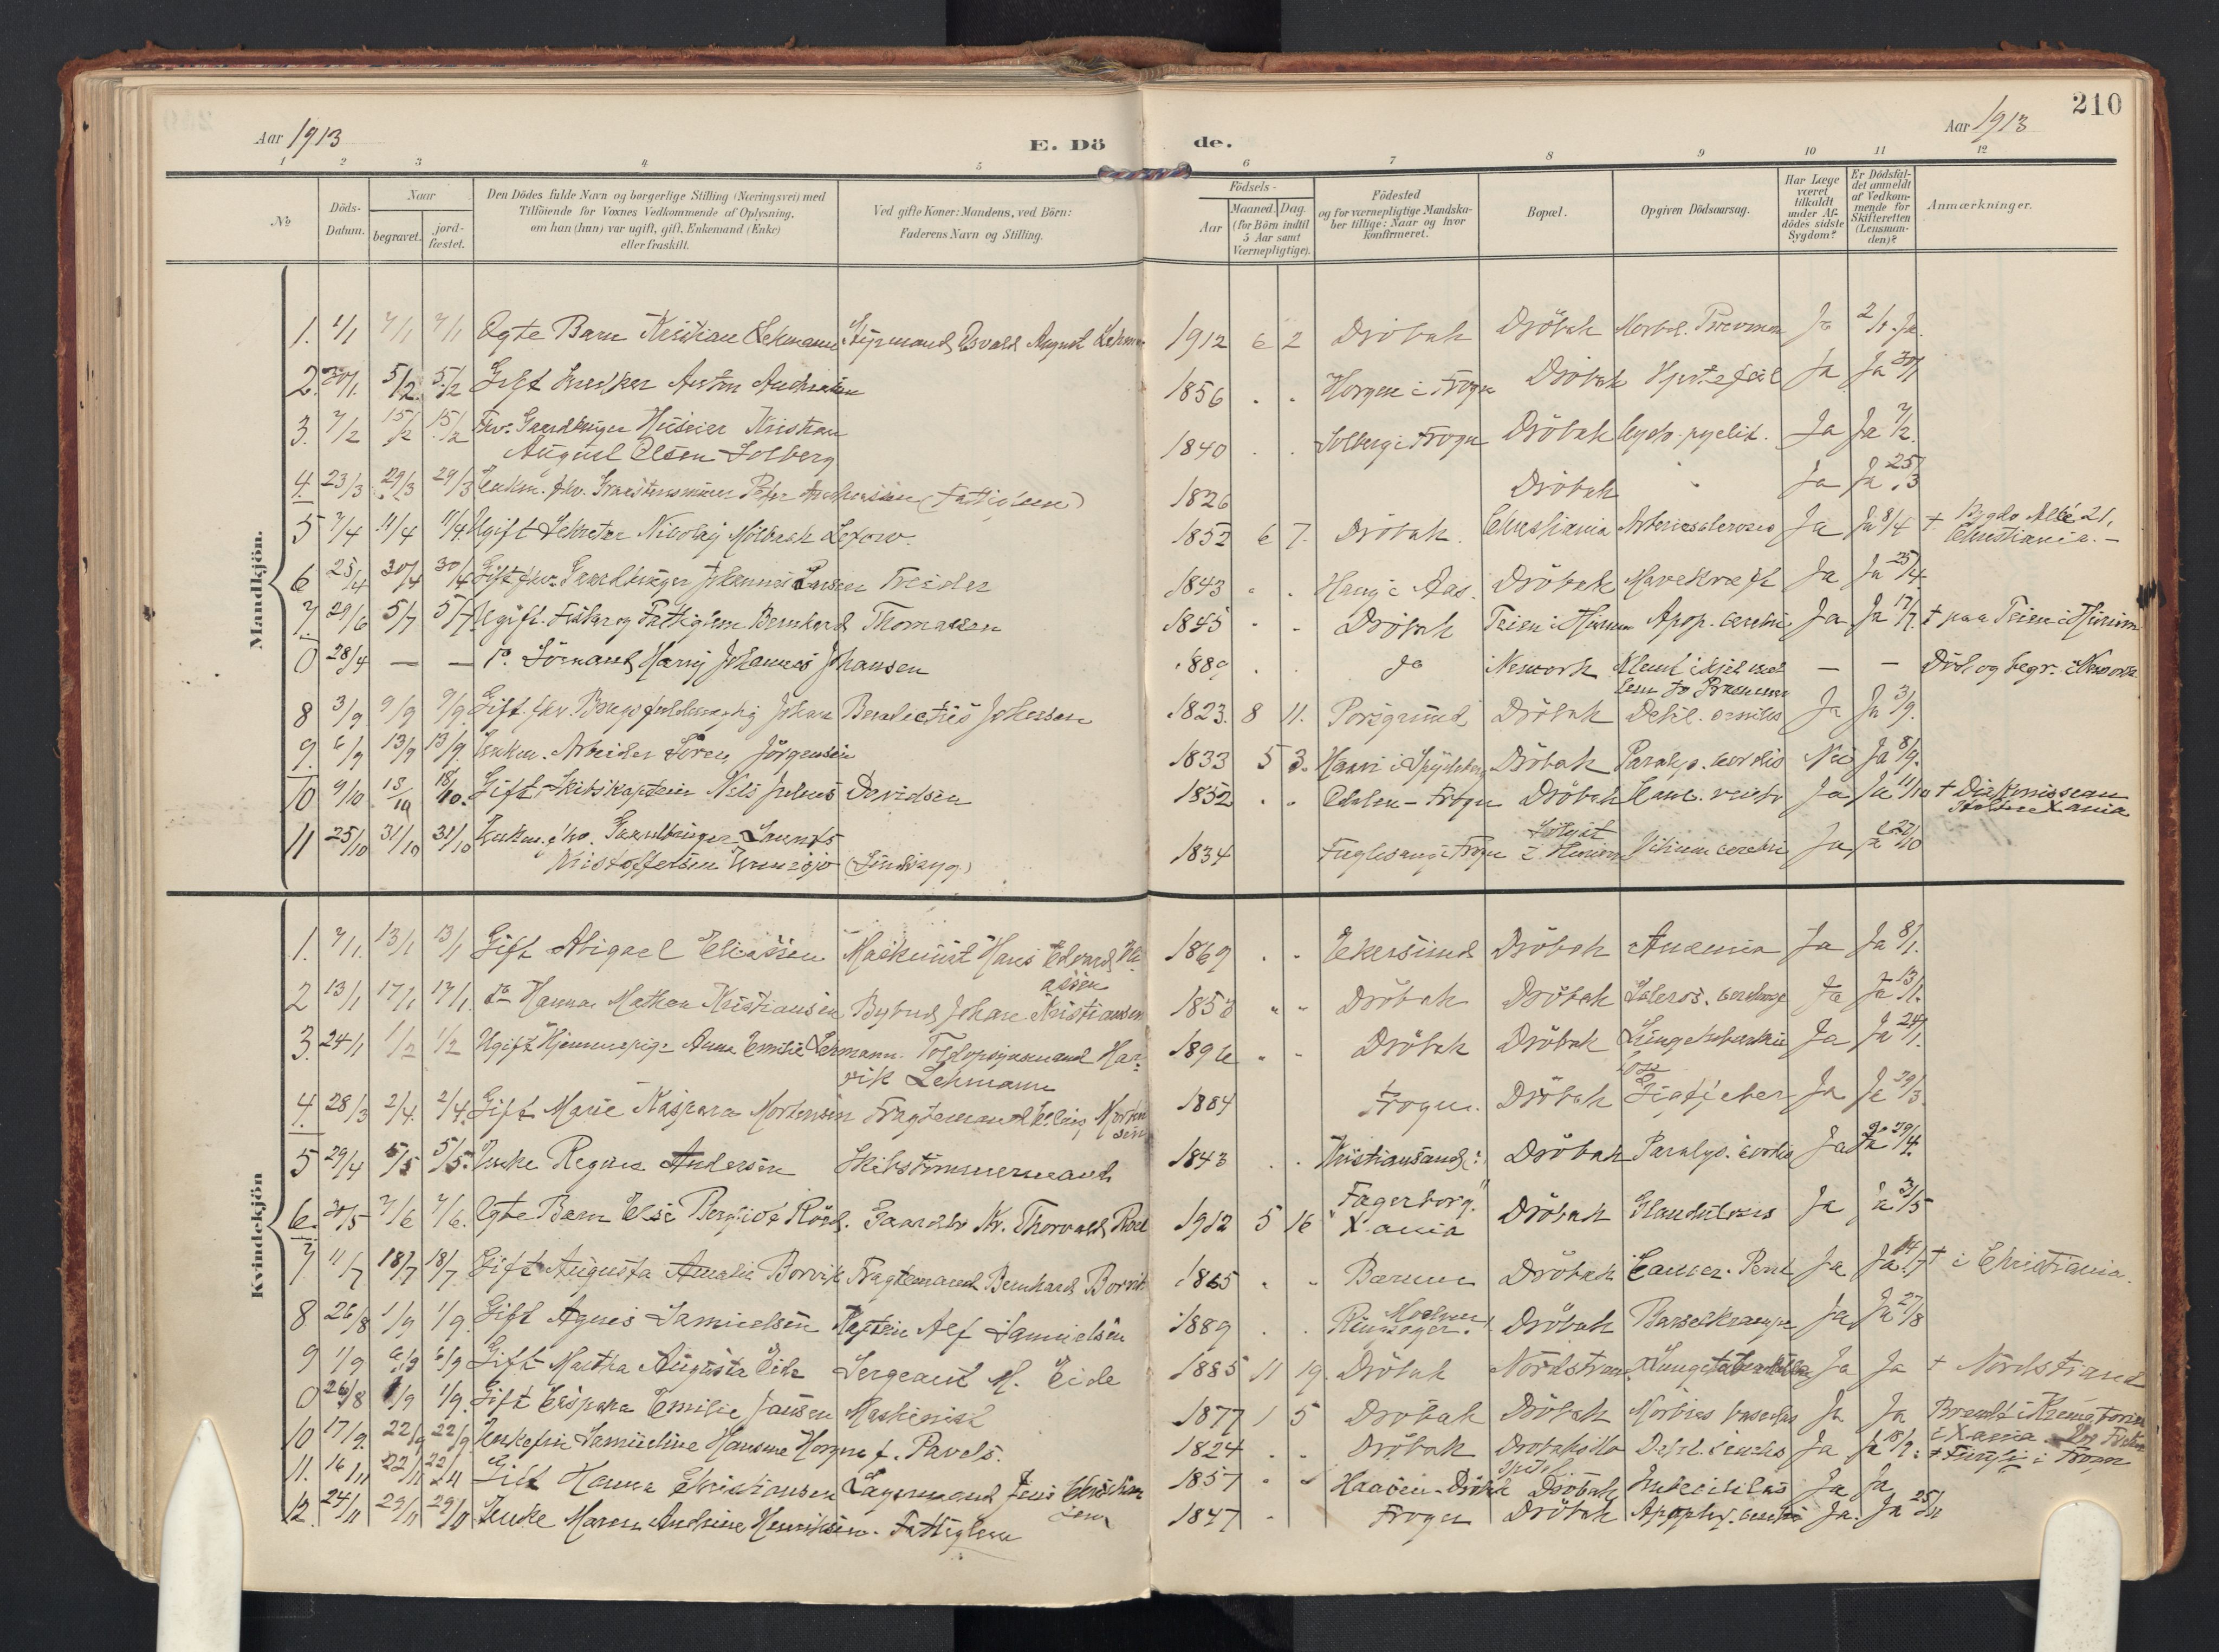 210
Aar 1913 E. Dö de. Aar 1913
1 2 3 4 5 6 7 8 9 10 11 12
No
Döds-Datum.
Naar
begravet.
jord-fæstet.
Den Dödes fulde Navn og borgerlige Stilling (Næringsvei) med
Tilföiende for Voxnes Vedkommende af Oplysning,
om han (hun) var ugift, gift, Enkemand (Enke)
eller fraskilt.
Ved gifte Koner: Mandens, ved Börn:
Faderens Navn og Stilling.
Födsels-
Aar
Maaned. Dag.
(for Börn indtil
5 Aar samt
Værnepligtige).
Födested
og for værnepligtige Mandska-
ber tillige: Naar og hvor
konfirmeret.
Bopæl.
Opgiven Dödsaarsag.
Har Læge
været
tilkaldt
under Af-
dödes sidste
Sygdom?
Er Dödsfal-
det anmeldt
af Vedkom-
mende for
Skifteretten
(Lensman-
den)?
Anmærkninger.
Mandkjön.
1. 1/1 7/1 7/1 Ægte Barn Kristian Lehmann Styrmand Osvald August Lehmann 1912 6 2 Dröbak Dröbak Ja 2/1 Ja.
2. 30/1 5/2 5/2 Gift Anton Andreasen 1856 . . Horgen i Frogn Dröbak Hjertefeil Ja Ja 30/1
3. 7/2 15/2 15/2 Fhv. Gaardbruger Huseier Kristian
August Olsen Solberg 1840 . . Solberg i Frogn Dröbak Cysto-pyelit. Ja Ja 7/2.
4. 23/3 29/3 29/3 Enkm. fhv. Peter Andreasen (Fattiglem) 1826 Dröbak Ja Ja 25/3
5 7/4 11/4 11/4 Ugift Sekretær Nicolay Lexow. 1852 6 7. Dröbak. Christiania Arteriesclerosis Ja Ja 8/4 † Bygdø Allé 21,
Christiania. –
6 25/4 30/4 30/4 Gift fhv. Gaardbruger Johannes Larsen Treider 1843 . . Haug i Aas. Dröbak Mavekræft Ja Ja 25/4
7. 29/6 5/7 5/7 Ugift. Fisker og Fattiglem Bernhard Thomassen 1845 . . Dröbak Teien i Hurum Apop. cerebri Ja Ja 17/7. † paa Teien i Hurum
0 28/4 — — Do. Sömand Harry Johannes Johansen 1889 . . Do Newyork — — Död og begr. i Newyork
8 3/9 9/9 9/9 Gift. fhv. Johan Benedictus Johansen 1823. 8 11. Porsgrund Dröbak Debil. senilis Ja Ja 3/9.
9. 6/9 13/9 13/9. Enkem. Arbeider Sören Jörgensen 1833 5 3. Dröbak Paralys. cordis Nei Ja 8/9.
10 9/10 13/10 18/10. Gift. Skibskaptein Nils Julius Davidsen 1852 . . Odalen - Frogn Dröbak Ja Ja 11/10 †
11 25/10 31/10 31/10 Enkem. fhv. Gaardbruger Laurits
Kristoffersen (Sindssyg) 1834 Fuglesang i Frogn i Hurum cerebri Ja Ja 27/10
Kvindekjön
1. 7/1. 13/1 13/1 Gift Abigael Eliassen Maskinist Hans Edvard Eli-
assen 1869 . . Ekersund Dröbak Anæmia Ja Ja 8/1.
2 13/1 17/1 17/1. do Hanna Mathea Kristiansen Bybud Johan Kristiansen 1858 " " Dröbak Dröbak Ja Ja 13/1.
3. 24/1 1/2 1/2 Ugift Hjemmepige Anna Emilie Lehmann. Toldopsynsmand Har-
vik Lehmann 1896 " " Dröbak Dröbak Lungetuberku
lose Ja Ja 24/1.
4. 28/3 2/4. 2/4. Gift Marie Kaspara Mortensen Fragtemand Morten
sen 1884 Frogn. Dröbak Ja Ja 29/3.
5 29/4 5/5 5/5. Enke Regine Andersen Skibstömmermand 1843 . . Kristiansand Dröbak Paralys. cordis Ja Ja 29/4.
6. 30/5 7/6 7/6. Ægte Barn Else Bergliot Röed. Kr. Thorvald Röed 1912 5 16 "Fagerborg."
X.ania Dröbak Ja Ja 31/5
7 11/7 18/7 18/7 Gift Augusta Amalia Borvik Fragtemand Bernhard Borvik 1865 . . Bærum Dröbak Cancer. Ja Ja 14/7 † i Christiania.
8 26/8 1/9 1/9. Gift Agnes Samuelsen Kaptein Alf Samuelsen 1889 . . Ringsager. Dröbak Ja Ja 27/8
9 1/9 6/9 6/9 Gift Martha Augusta Eide Sergeant M. Eide 1885 11 19. Dröbak Nordstrand Ja Ja † Nordstrand
0 26/8 1/9 1/9. Gift Caspara Emilie Jansen Maskinist 1877 1 5 Dröbak Dröbak Morbus Ja Ja Brændt i Krematorium
i Xania.
10 17/9. 22/9 22/9 Enkefru Samueline Hansine f. Pavels. 1824 . . Dröbak Debil. senilis Ja Ja 18/9. † i Frogn
11. 16/11 22/11 22/11 Gift Hanna Christiansen Jens Christian
sen 1857 " " Dröbak Ja Ja
12. 24/11 29/11 29/11 Enke Maren Andrine Henriksen. Fattiglem 1847 " Frogn Dröbak Apoplex. cerebri Ja. Ja 25/11